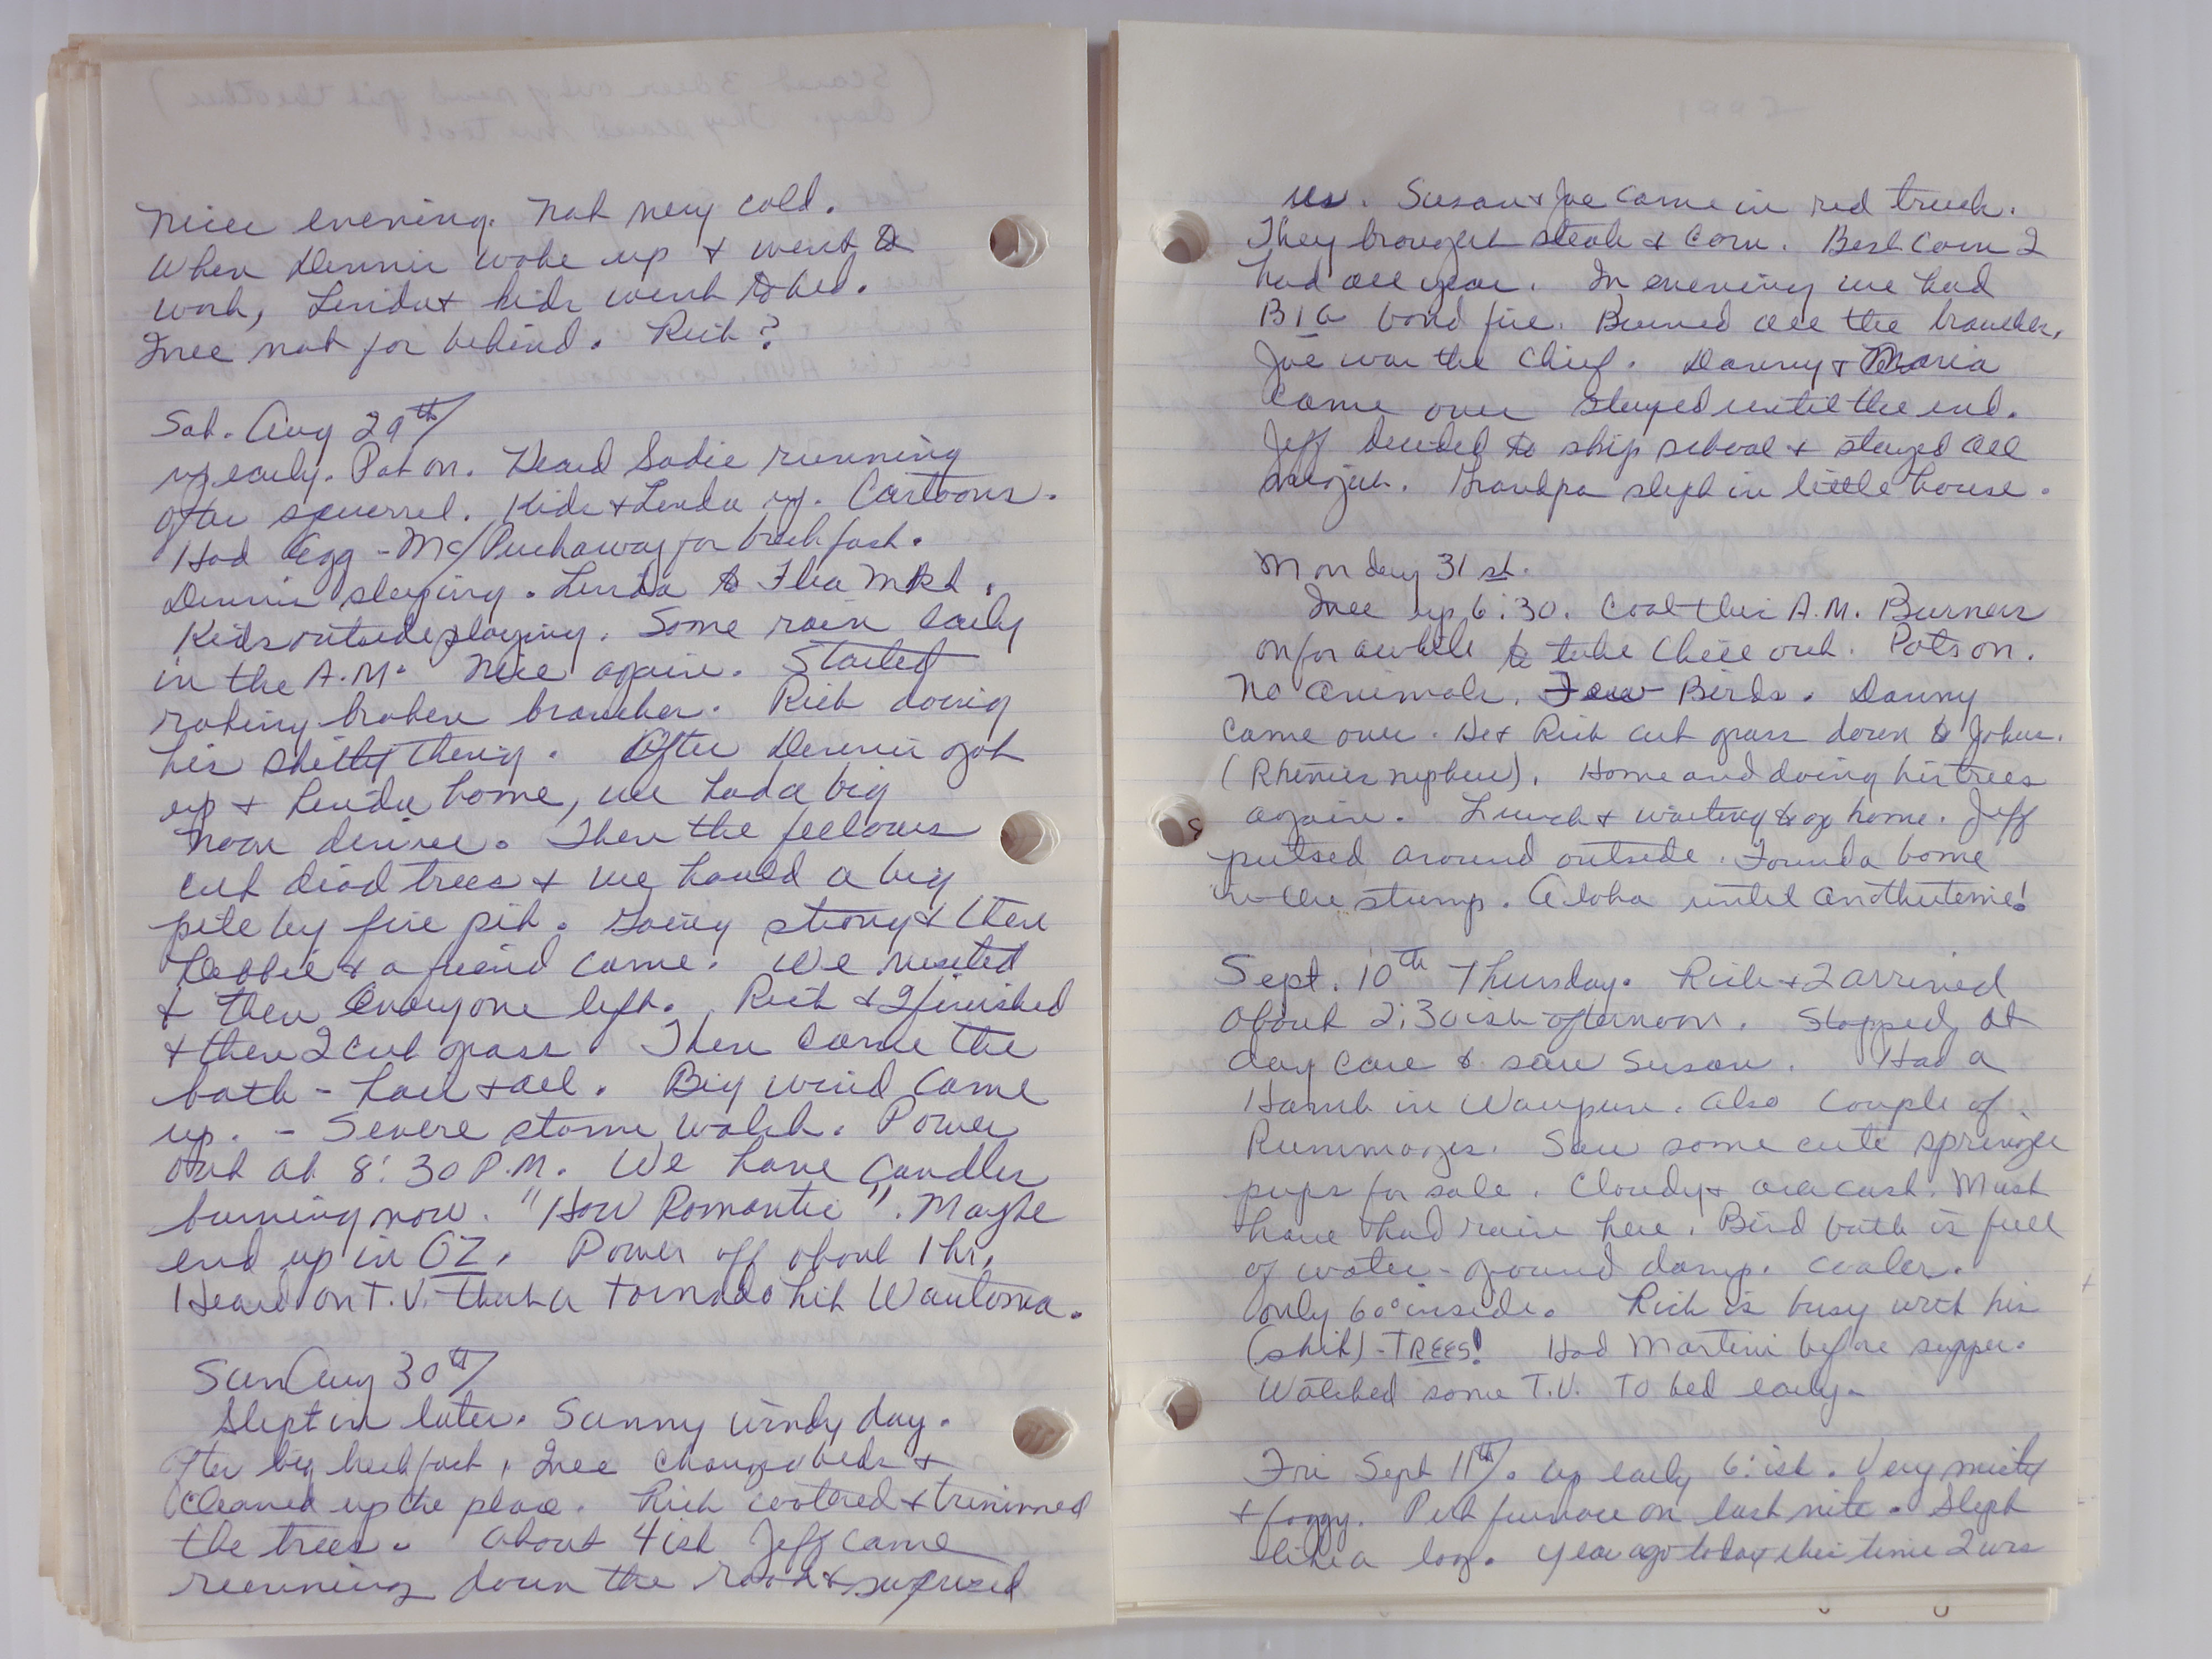 Nice evening. Not very cold.
When Dennis woke up & went to
work, Linda & kids went to bed.
Mee not far behind. Rich?
Sat. Aug 29th/
up early. Pot on. Heard Sadie running
after squirrel. Kids & Linda up. Cartoons.
Had Egg-Mc/Puckaway for breckfast.
Dennis sleeping. Linda to Flea Mkt.
Kids outside playing. Some rain early
in the A.M. Nice again. Started
raking broken branches. Rich doing
his shitty thing. After Dennis got
up & Linda home, we had a big
noon dinner. Then the fellows
cut dead trees & we hauled a big
pile by fire pit. Going strong & then
Debbie & a friend came. We visited
& then everyone left. Rich & I finished
& then I cut grass. Then came the
bath - hair & all. Big wind came
up. - Severe storm watch. Power
out at 8:30 P.M. We have Candles
burning now. "How Romantic". Maybe
end up in OZ. Power off about 1 hr.
Heard on T.V. that a tornado hit Wautoma.
Sun Aug 30th/
Slept in later. Sunny windy day.
After big breckfast, Mee changed beds &
cleaned up the place. Rich watered & trimmed
the trees. About 4ish Jeff came
running down the road & surprised
1992
us. Susan & Joe came in red truck.
They brought steak & corn. Best Corn I
had all year. In evening we had
BIG bond fire. Burned all the branches.
Joe was the Chief. Danny & Maria
Came over stayed until the end.
Jeff decided to skip school & stayed all
night. Grandpa slept in little house.
Monday 31st.
Mee up 6:30. Cool this A.M. Burners
on for awhile to take Chill out. Pots on.
No animals. Few Birds. Danny
came over. He & Rich cut grass down to Johns.
(Rhenies nephew). Home and doing his trees
again. Lunch & waiting to go home. Jeff
putsed around outside. Found a home
in the stump. Aloha until another time!
Sept. 10th Thursday. Rich & I arrived
about 2:30ish afternoon. Stopped at
day care & saw Susan. Had a
Hamb in Waupun. Also Couple of
Rummages. Saw some cute springer
pups for sale. Cloudy & overcast. Must
have had rain here. Bird bath is full
of water - ground damp. Cooler.
only 60° inside. Rich is busy with his
(shit) - TREES! Had Martini before supper.
Watched some T.V. To bed early.
Fri Sept 11th/. Up early 6:ish. Very misty
& foggy. Put furnace on last nite. Slept
like a log. Year ago today this time I was